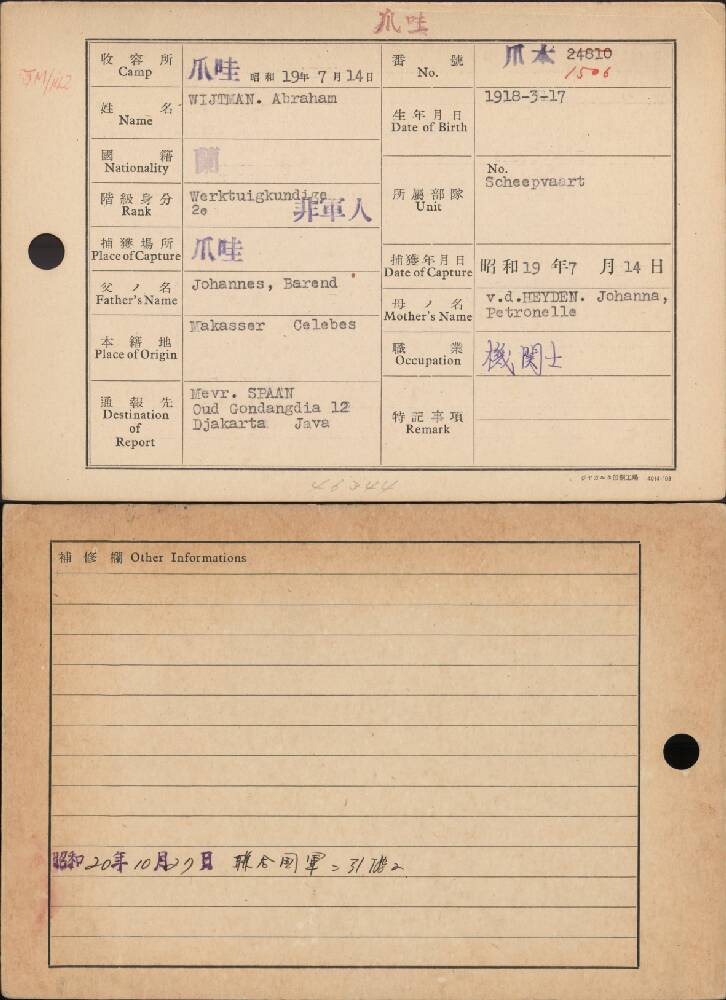 爪哇
JM/1122
收容所
Camp
爪哇 昭和 19年 7月 14日
番號
No.
爪本 24810
1506
姓名
Name
WIJTMAN. Abraham
生年月日
Date of Birth
1918-3-17
國籍
Nationality
蘭
階級身分
Rank
Werktuigkundige
2e
非軍人
所屬部隊
Unit
No.
Scheepvaart
捕獲場所
Place of Capture
爪哇
捕獲年月日
Date of Capture
昭和19年7月14日
父ノ名
Father's Name
Johannes, Barend
母ノ名
Mother's Name
v.d.HEYDEN. Johanna,
Petronelle
本籍地
Place of Origin
Makasser Celebes
職業
Occupation
機関士
通報先
Destination
of
Report
Mevr. SPAAN
Oud Gondangdia 12
Djakarta Java
特記事項
Remark
46344
ジヤカルタ印刷工場
補修欄 Other Informations
昭和20年10月27日 聯合国軍ニ引渡ス